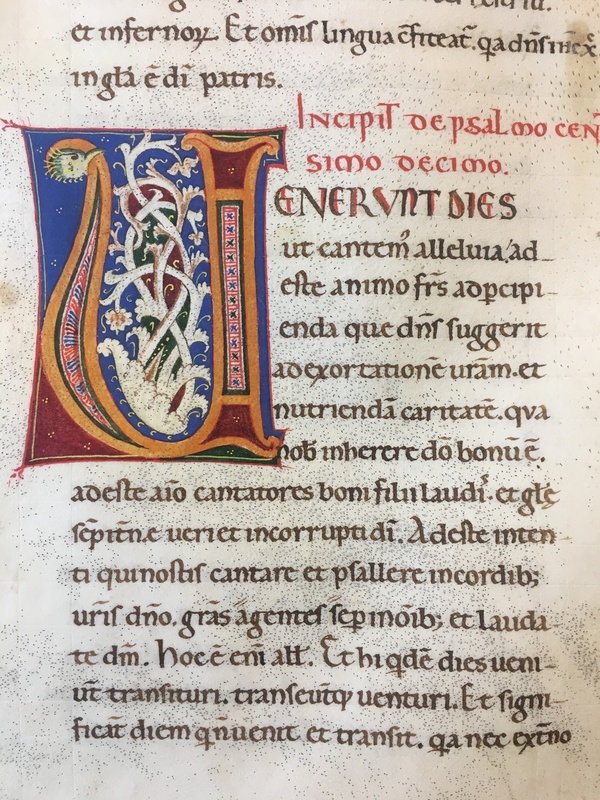 et infernoꝝ. Et om̄is lingua c̄fiteat̄. qa dn̄s
in gl̄a ē dī patris.
Incipit de psalmo cen
simo decimo.
VENERVNT DIES
ut cantem᷒ alleluia / ad
este animo fr̄s ad ꝑcipi
enda que dn̄s suggerit
ad exortationē ur̄am. et
nutriendā caritatē. qva
nob̄ inherere dō bonū ē.
adeste aīo cantatores boni filii laudi᷒. et gl̄ę
sēpitn̄e ueri et incorrupti dī. Adeste inten
ti qui nostis cantare et psallere in cordib;
ur̄is dn̄o. gr̄as agentes sēp in oīb; et lauda
te dm̄. Hoc ē enī all̄. Et hi qdē dies ueni
ūt transituri. transeūtq uenturi. Et signi
ficāt diem q n̄ uenit et transit. qa nec ext̄no